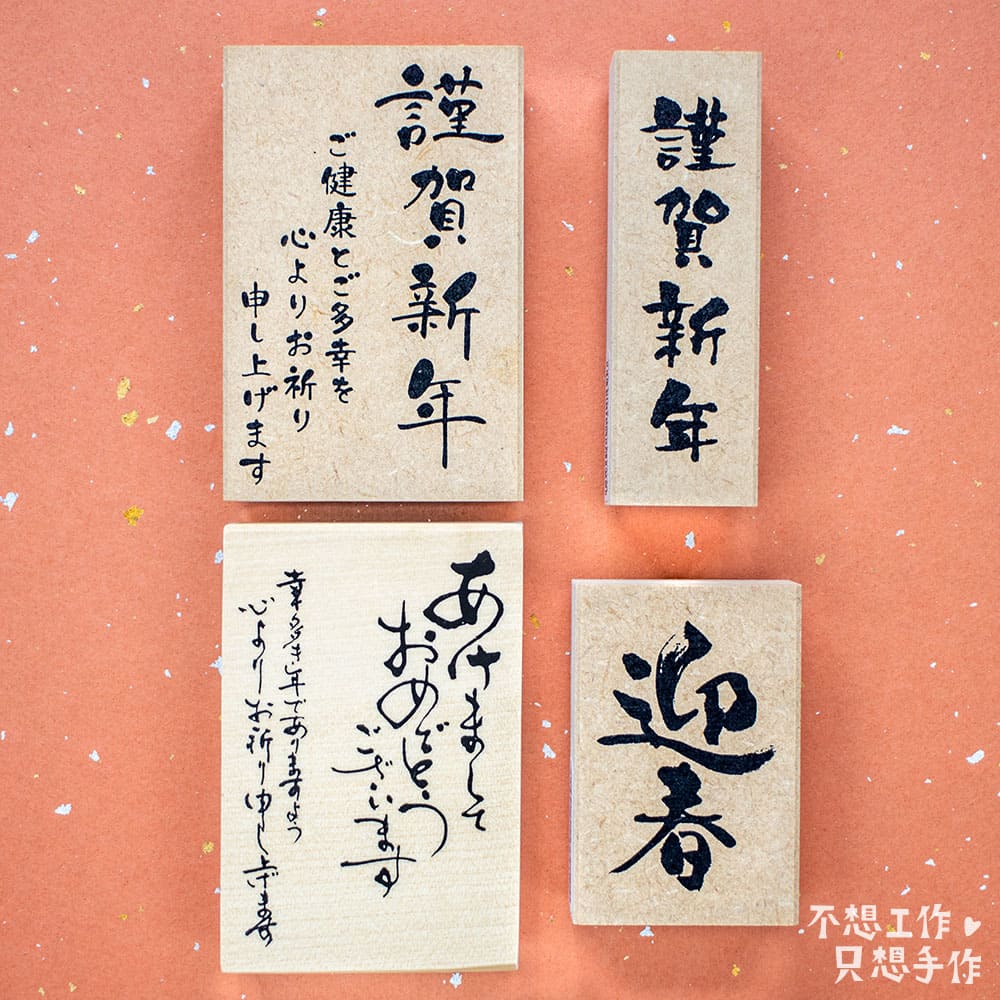 謹賀新年
ご健康とご多幸を
心よりお祈り
申し上げます
謹賀新年
あけまして
おめでとう
ございます
幸多き年でありますよう
心よりお祈り申し上げます
迎春
不想工作
只想手作